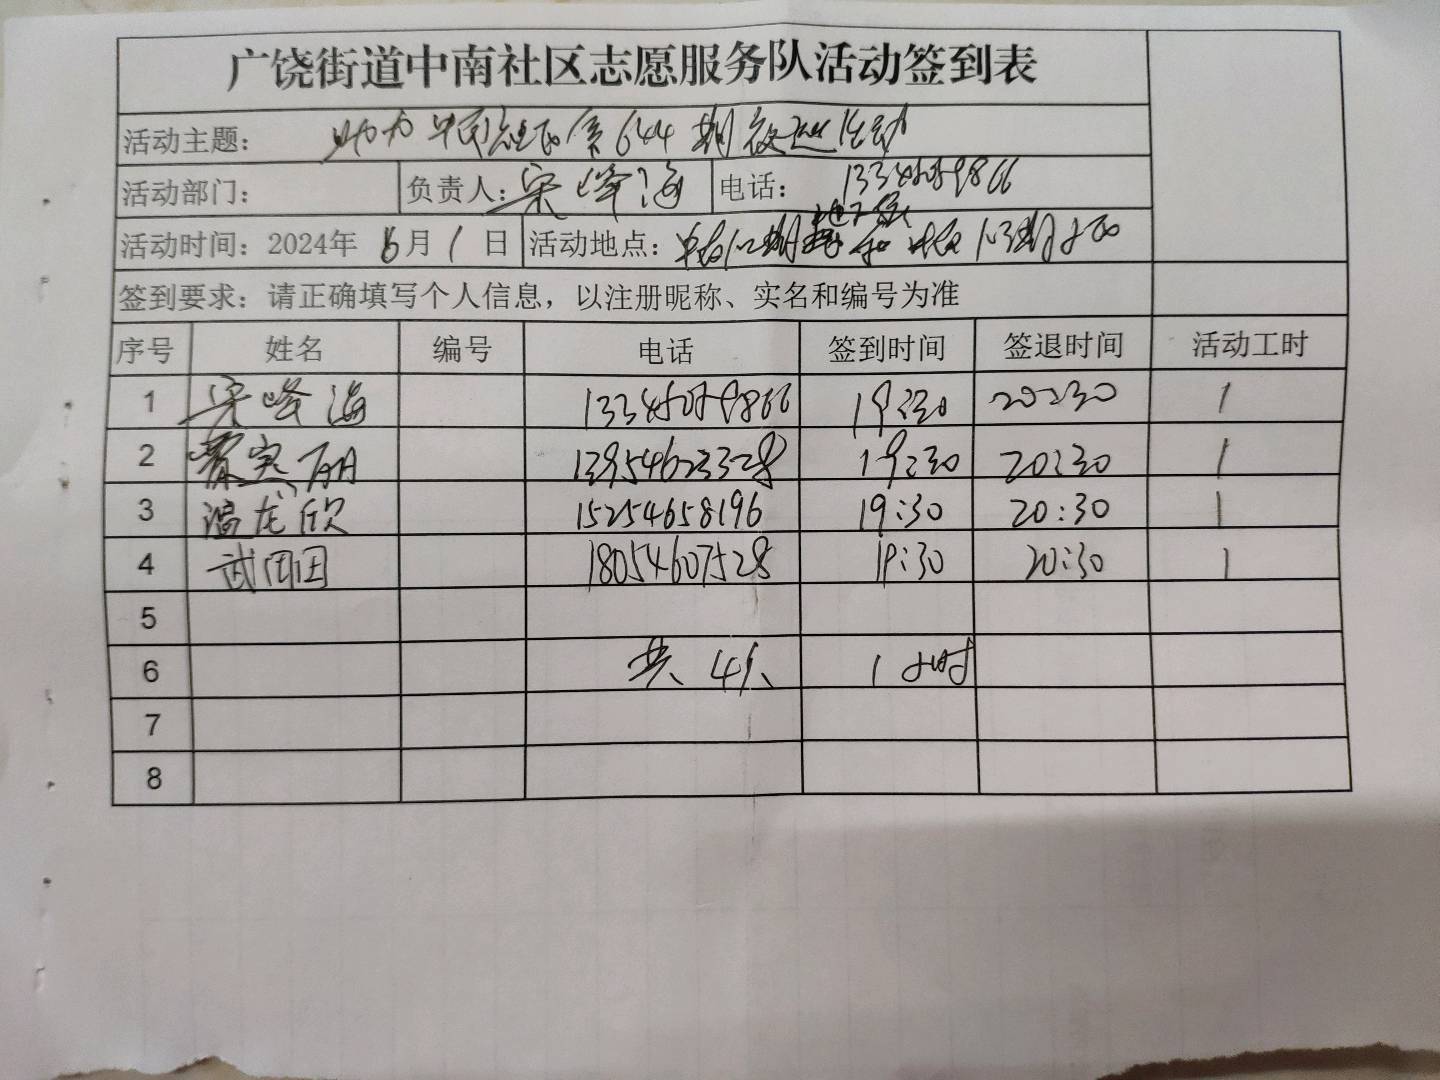 广饶街道中南社区志愿服务队活动签到表
活动主题： 助力 第644期夜巡活动
活动部门： 负责人：宋峰海 电话：
活动时间：2024年6月1日 活动地点：
签到要求：请正确填写个人信息，以注册昵称、实名和编号为准
序号 姓名 编号 电话 签到时间 签退时间 活动工时
1 宋峰海 19:30 20:30 1
2 13954623328 19:30 20:30 1
3 温龙欣 15254658196 19:30 20:30 1
4 武田田 18054607528 19:30 20:30 1
5
6 共4人 1小时
7
8